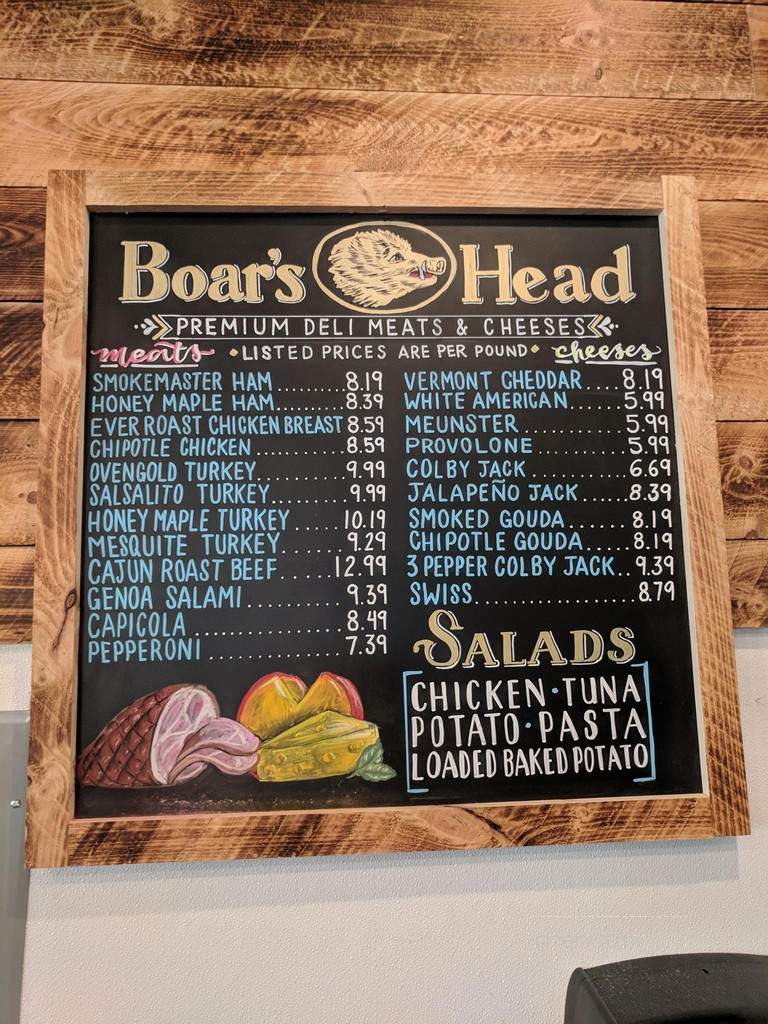 Boar's Head
PREMIUM DELI MEATS & CHEESES
meats • LISTED PRICES ARE PER POUND • cheeses
SMOKEMASTER HAM.........8.19
HONEY MAPLE HAM.........8.39
EVER ROAST CHICKEN BREAST 8.59
CHIPOTLE CHICKEN............8.59
OVENGOLD TURKEY............9.99
SALSALITO TURKEY..........9.99
HONEY MAPLE TURKEY......10.19
MESQUITE TURKEY..........9.29
CAJUN ROAST BEEF......12.99
GENOA SALAMI............9.39
CAPICOLA..................8.49
PEPPERONI................7.39
VERMONT CHEDDAR.....8.19
WHITE AMERICAN......5.99
MEUNSTER.............5.99
PROVOLONE...........5.99
COLBY JACK...........6.69
JALAPEÑO JACK......8.39
SMOKED GOUDA......8.19
CHIPOTLE GOUDA.....8.19
3 PEPPER COLBY JACK..9.39
SWISS..................8.79
SALADS
CHICKEN • TUNA
POTATO • PASTA
LOADED BAKED POTATO